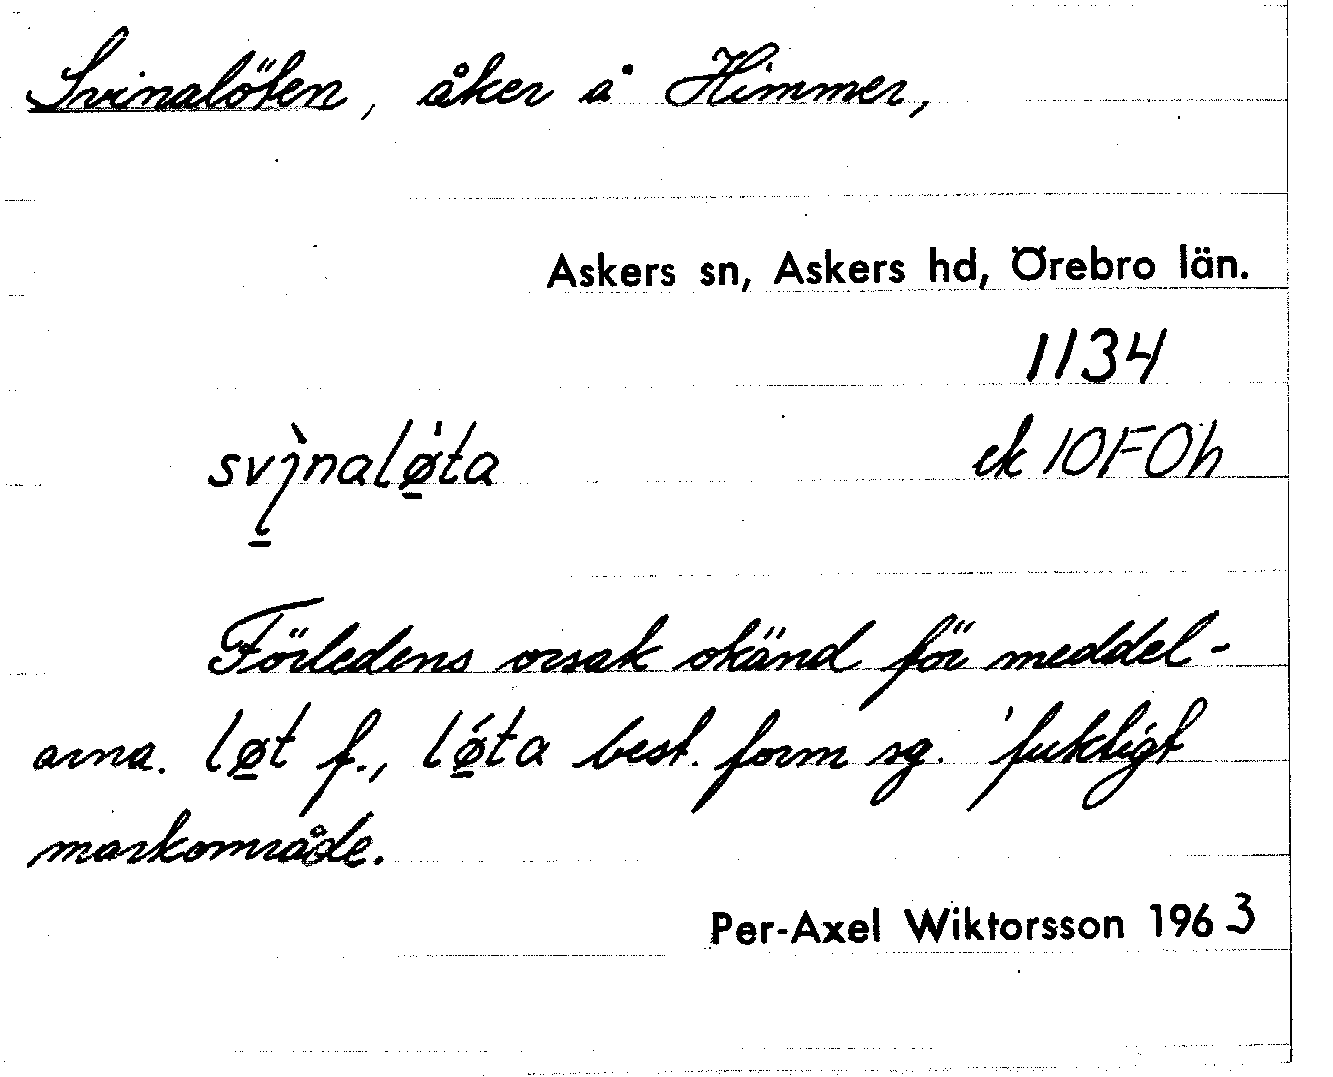 Svinalöten, åker å Himmer,
Askers sn, Askers hd, Örebro län.
1134
svì̠nalǿ̠ta
ek 10F0h
Förledens orsak okänd för meddel-
arna. lø̠t f., lǿ̠ta best. form sg. 'fuktigt
markområde.
Per-Axel Wiktorsson 1963